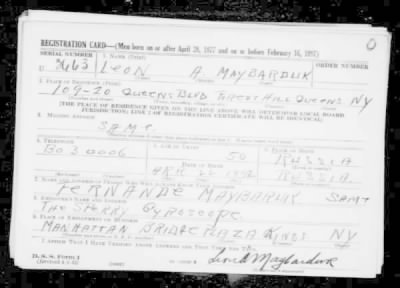 REGISTRATION CARD—(Men born on or after April 28, 1877 and on or before February 16, 1897)
SERIAL NUMBER 1. NAME (Print) ORDER NUMBER
U 3663 LEON A. MAYBARDUK
2. PLACE OF RESIDENCE (Print)
109-20 QUEENS BLVD FOREST HILL QUEENS NY
[THE PLACE OF RESIDENCE GIVEN ON THE LINE ABOVE WILL DETERMINE LOCAL BOARD
JURISDICTION; LINE 2 OF REGISTRATION CERTIFICATE WILL BE IDENTICAL]
3. MAILING ADDRESS
SAME
4. TELEPHONE 5. AGE IN YEARS 6. PLACE OF BIRTH
BO 3 0006 50 RUSSIA
DATE OF BIRTH
APR 22 1892 RUSSIA
7. NAME AND ADDRESS OF PERSON WHO WILL ALWAYS KNOW YOUR ADDRESS
FERNANDE MAYBARDUK SAME
8. EMPLOYER'S NAME AND ADDRESS
THE SPERRY GYROSCOPE
9. PLACE OF EMPLOYMENT OR BUSINESS
MANHATTAN BRIDGE PLAZA KINGS NY
I AFFIRM THAT I HAVE VERIFIED ABOVE ANSWERS AND THAT THEY ARE TRUE.
D. S. S. Form 1
Maybarduk